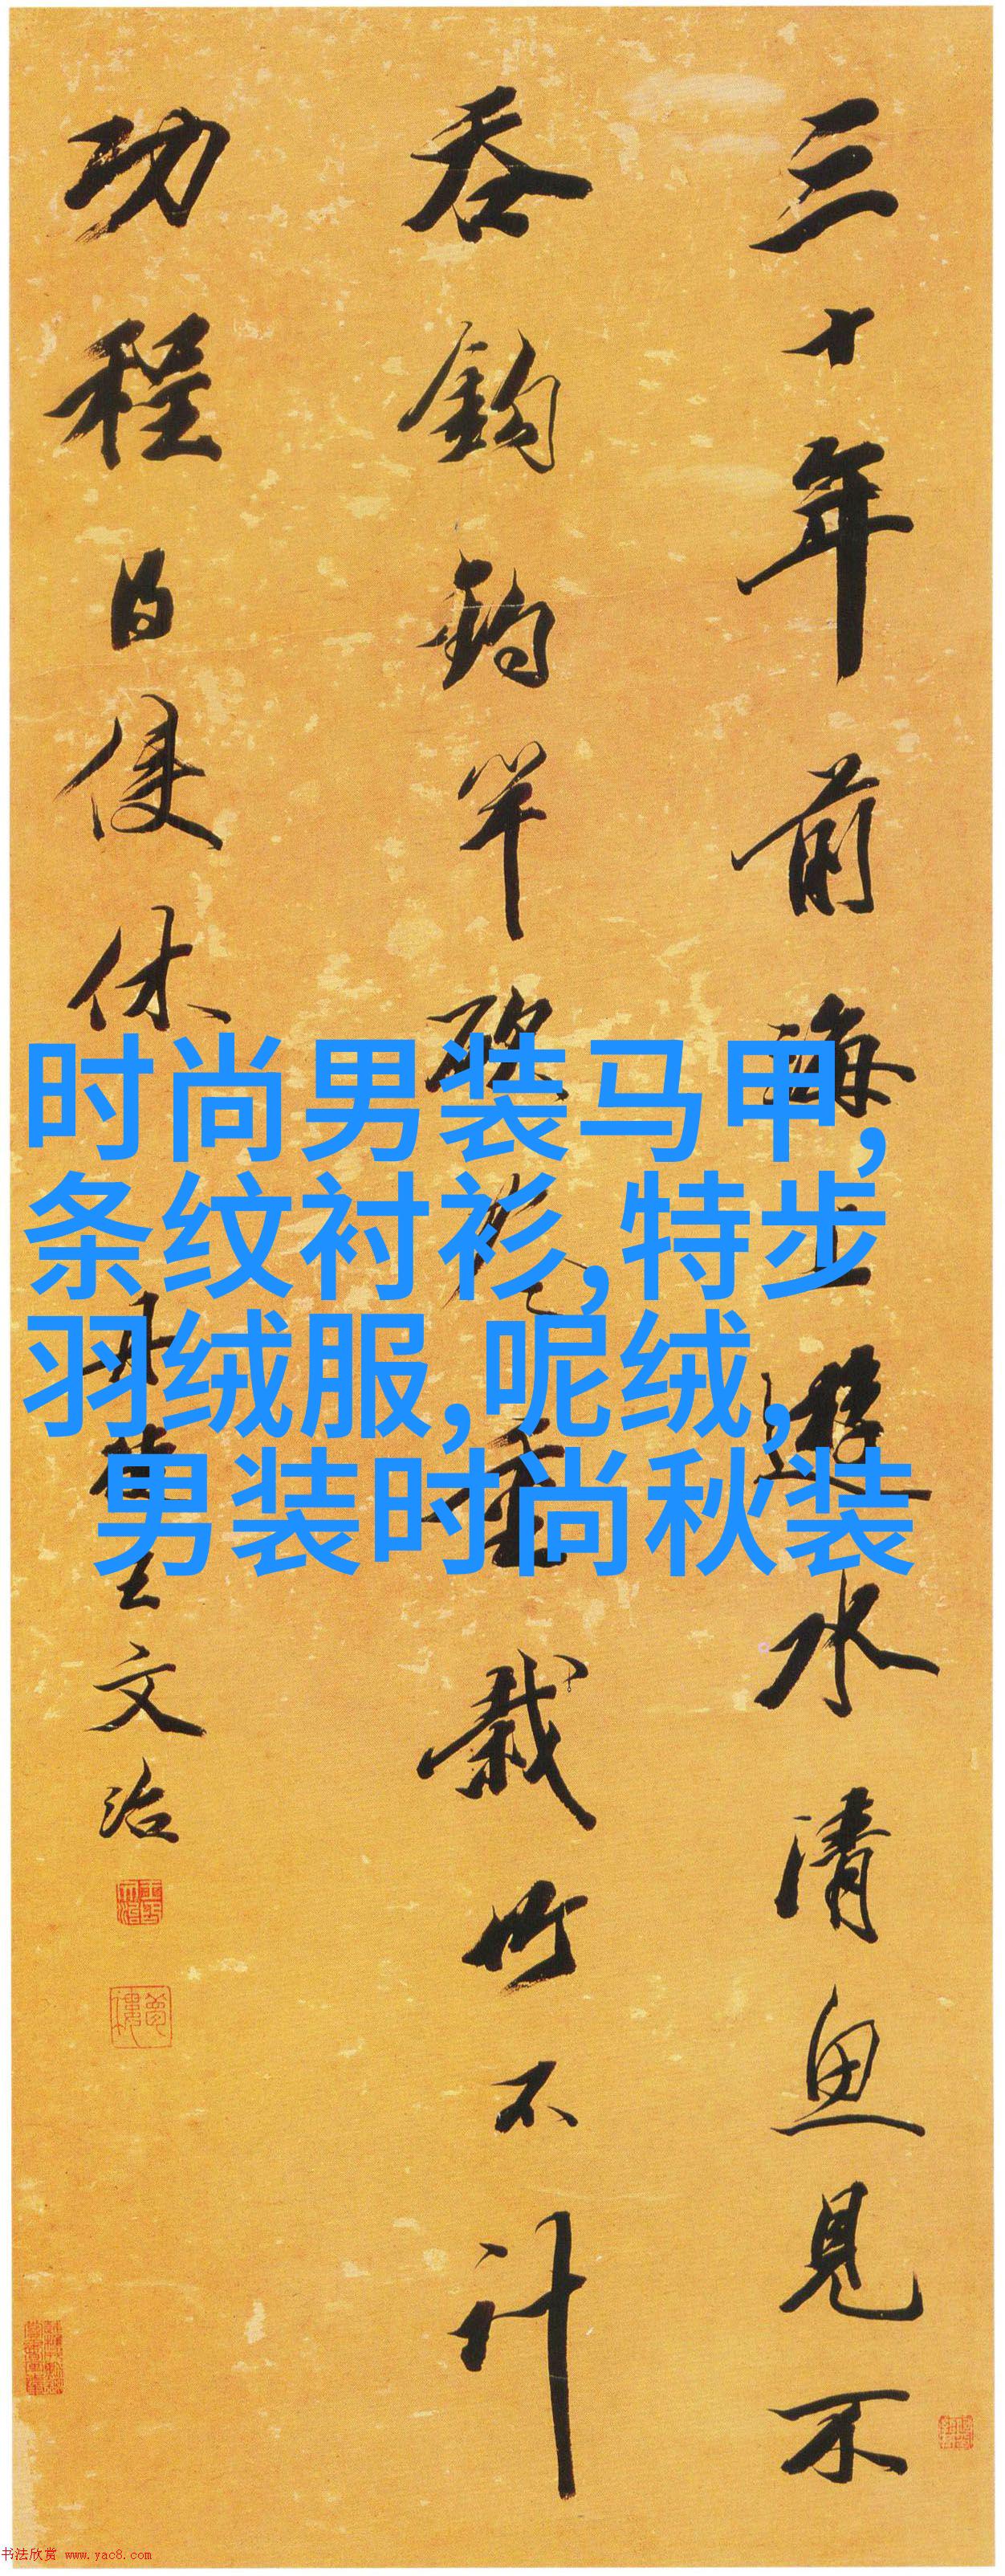 三十年前海上遊水清魚見不
吞鈎釣竿斫盡重栽竹不計
功程得便休
丹徒王文治
时尚男装马甲,
条纹衬衫,特步
羽绒服,呢绒,
男装时尚秋装
书法欣赏 www.yac8.com